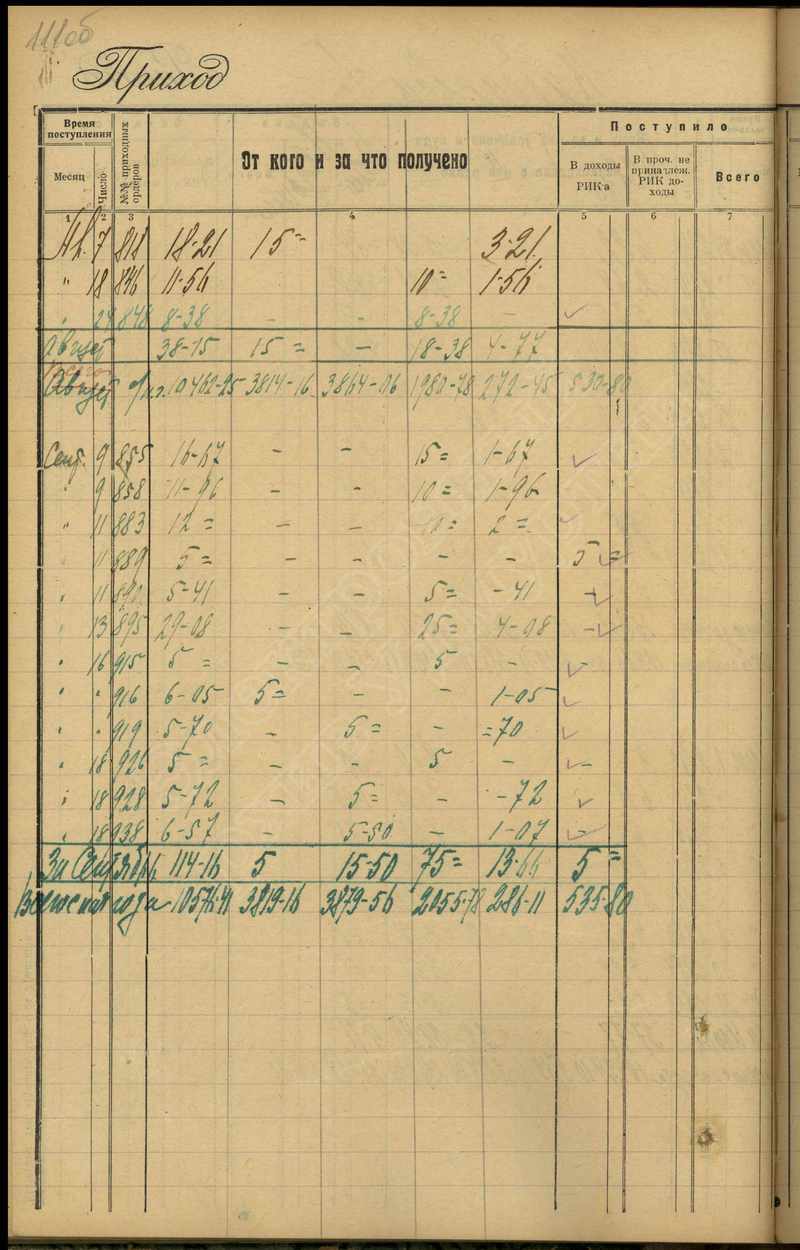 111об
Приход
Время поступления
№№ приходных ордеров
От кого и за что получено
Поступило
Месяц
Число
В доходы РИК-а
В проч. не принадлеж. РИК доходы
Всего
1 2 3 4 5 6 7
Ав. 7 818 18-21 15= 3-21
" 18 846 11-56 10= 1-56
" 24 848 8-38 - - 8-38 -
Август 38-15 15= - 18-38 4-77
Август 10462-25 3814-16 3864-06 1980-78 272-45 530-80
Сент. 9 855 16-67 - - 15= 1-67
" 9 858 11-96 - - 10= 1-96
" 11 883 12= - - 10= 2=
11 889 5= - - - - 5=
" 11 890 5-41 - - 5= -41 -
" 13 895 29-08 - - 25= 4-08 -
" 16 915 5= - - 5 - -
" " 916 6-05 5= - - 1-05
" " 919 5-70 - 5= - =70
" 18 926 5= - - 5 - -
" 18 928 5-72 - 5= - -72
" 18 938 6-57 - 5-50 - 1-07 -
За Сентябрь 114-16 5 15-50 75= 13-66 5=
Всего с нач года 10576-41 3819-16 3879-56 2055-78 286-11 535-80